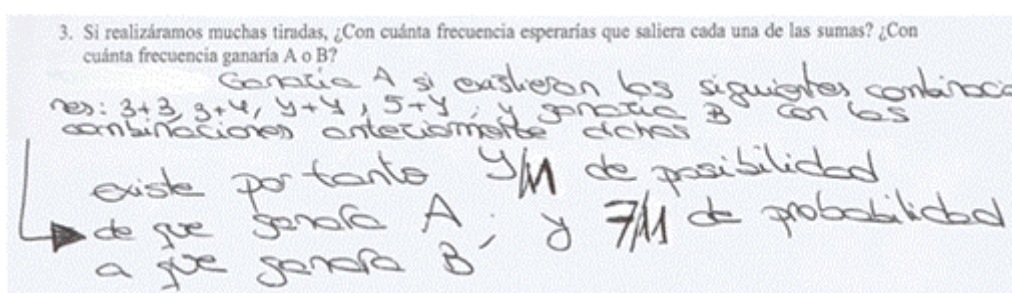 3. Si realizáramos muchas tiradas, ¿Con cuánta frecuencia esperarías que saliera cada una de las sumas? ¿Con
cuánta frecuencia ganaría A o B?
Ganaría A si existieran los siguientes combinacio
nes: 3+3, 3+4, 4+4, 5+4; y ganaría B con las
combinaciones anteriormente dichas
existe por tanto 4/11 de posibilidad
de que ganara A; y 7/11 de probabilidad
a que ganara B